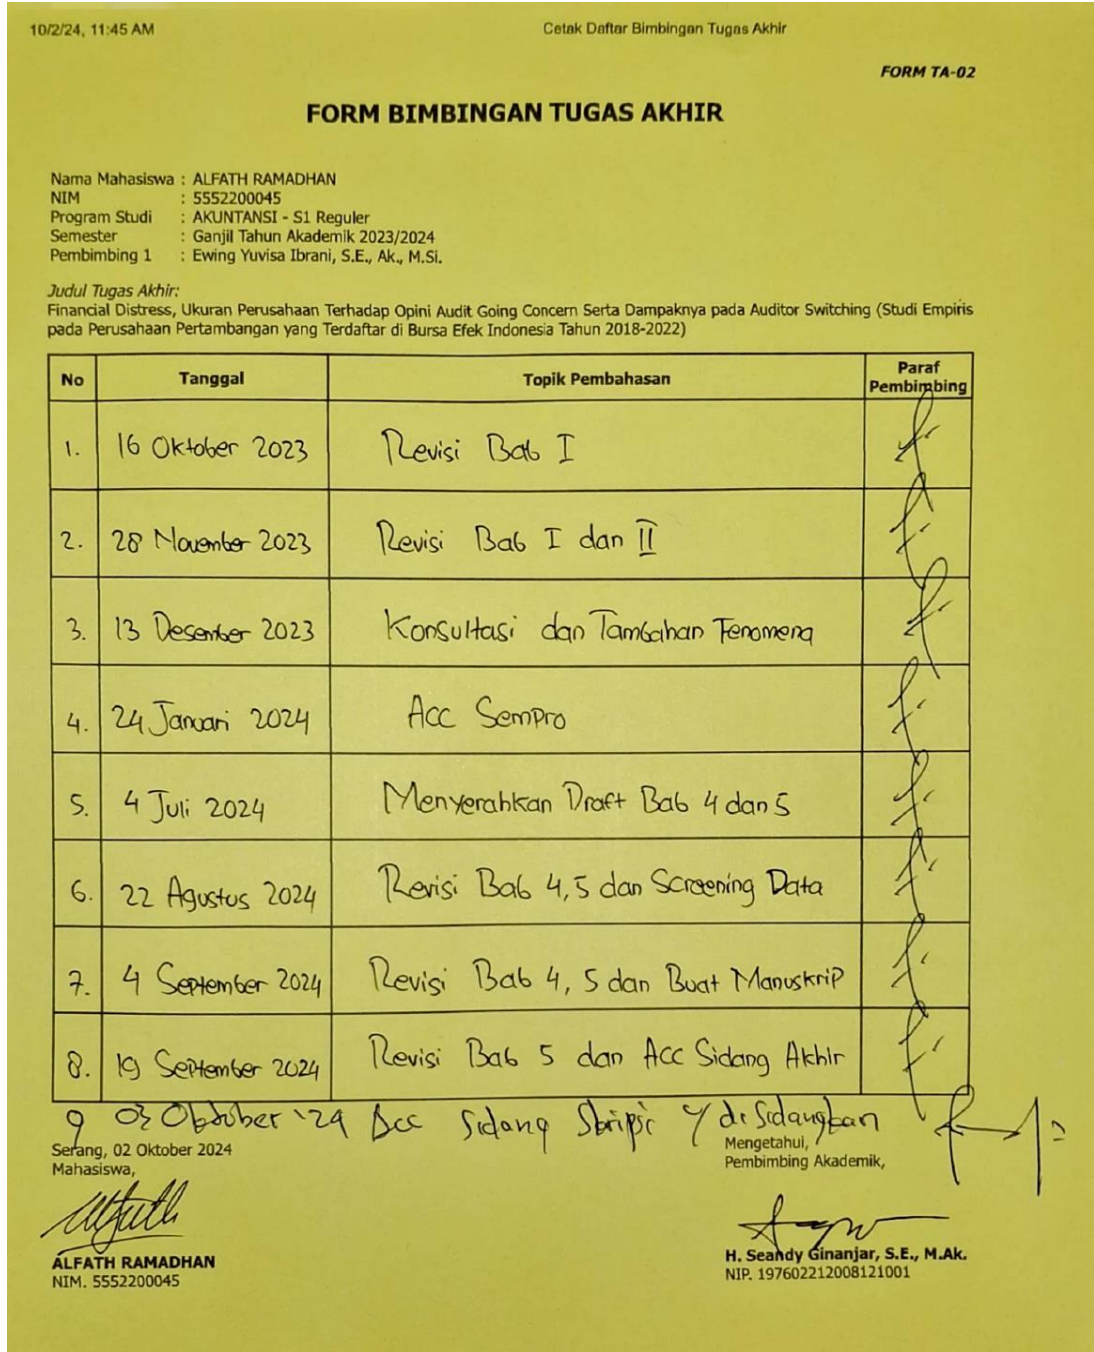 10/2/24, 11:45 AM Cetak Daftar Bimbingan Tugas Akhir
FORM TA-02
FORM BIMBINGAN TUGAS AKHIR
Nama Mahasiswa : ALFATH RAMADHAN
NIM : 5552200045
Program Studi : AKUNTANSI - S1 Reguler
Semester : Ganjil Tahun Akademik 2023/2024
Pembimbing 1 : Ewing Yuvisa Ibrani, S.E., Ak., M.Si.
Judul Tugas Akhir:
Financial Distress, Ukuran Perusahaan Terhadap Opini Audit Going Concern Serta Dampaknya pada Auditor Switching (Studi Empiris
pada Perusahaan Pertambangan yang Terdaftar di Bursa Efek Indonesia Tahun 2018-2022)
No Tanggal Topik Pembahasan Paraf Pembimbing
1. 16 Oktober 2023 Revisi Bab I
2. 28 November 2023 Revisi Bab I dan II
3. 13 Desember 2023 Konsultasi dan Tambahan Fenomena
4. 24 Januari 2024 Acc Sempro
5. 4 Juli 2024 Menyerahkan Draft Bab 4 dan 5
6. 22 Agustus 2024 Revisi Bab 4,5 dan Screening Data
7. 4 September 2024 Revisi Bab 4, 5 dan Buat Manuskrip
8. 19 September 2024 Revisi Bab 5 dan Acc Sidang Akhir
9 03 Oktober '24 Acc Sidang Skripsi y disidangkan
Serang, 02 Oktober 2024
Mahasiswa,
ALFATH RAMADHAN
NIM. 5552200045
Mengetahui,
Pembimbing Akademik,
H. Seandy Ginanjar, S.E., M.Ak.
NIP. 197602212008121001